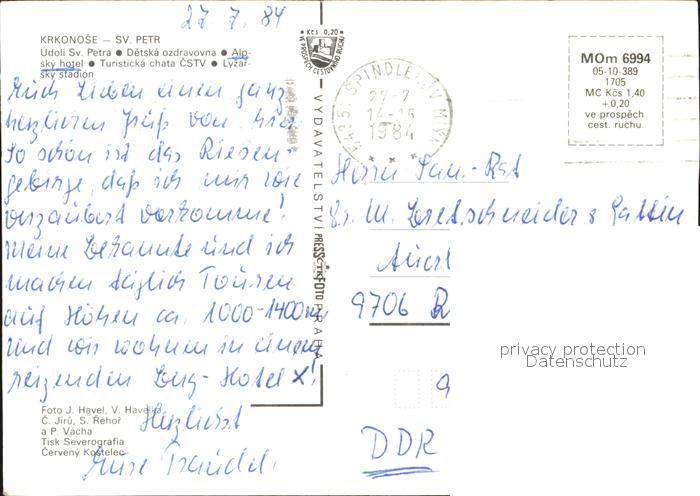 27.7.84
KRKONOŠE – SV. PETR
Údolí Sv. Petra ● Dětská ozdravovna ● Alp-
ský hotel ● Turistická chata ČSTV ● Lyžař-
ský stadion
Euch Lieben einen ganz
herzlichen Gruß von hier.
So schön ist das Riesen-
gebirge, daß ich mir wie
verzaubert vorkomme!
Meine Bekannte und ich
machen täglich Touren
auf Höhen ca. 1000-1400m
und wir wohnen in einem
reizenden Berg-Hotel x!
Herzlichst
Eure Traudel.
Foto J. Havel, V. Havelka,
Č. Jirů, S. Řehoř
a P. Vácha
Tisk Severografia
Červený Kostelec
Kčs 0,20
VE PROSPĚCH CESTOVNÍHO RUCHU
VYDAVATELSTVÍ PRESSFOTO PRAHA
ČTK
ŠPINDLERŮV MLÝN
27-7
14-15
1984
MOm 6994
05-10-389
1705
MC Kčs 1,40
+ 0,20
ve prospěch
cest. ruchu
Herrn
Dr. M. Bretschneider & Gattin
Auerb
9706 R
9
DDR
privacy protection
Datenschutz